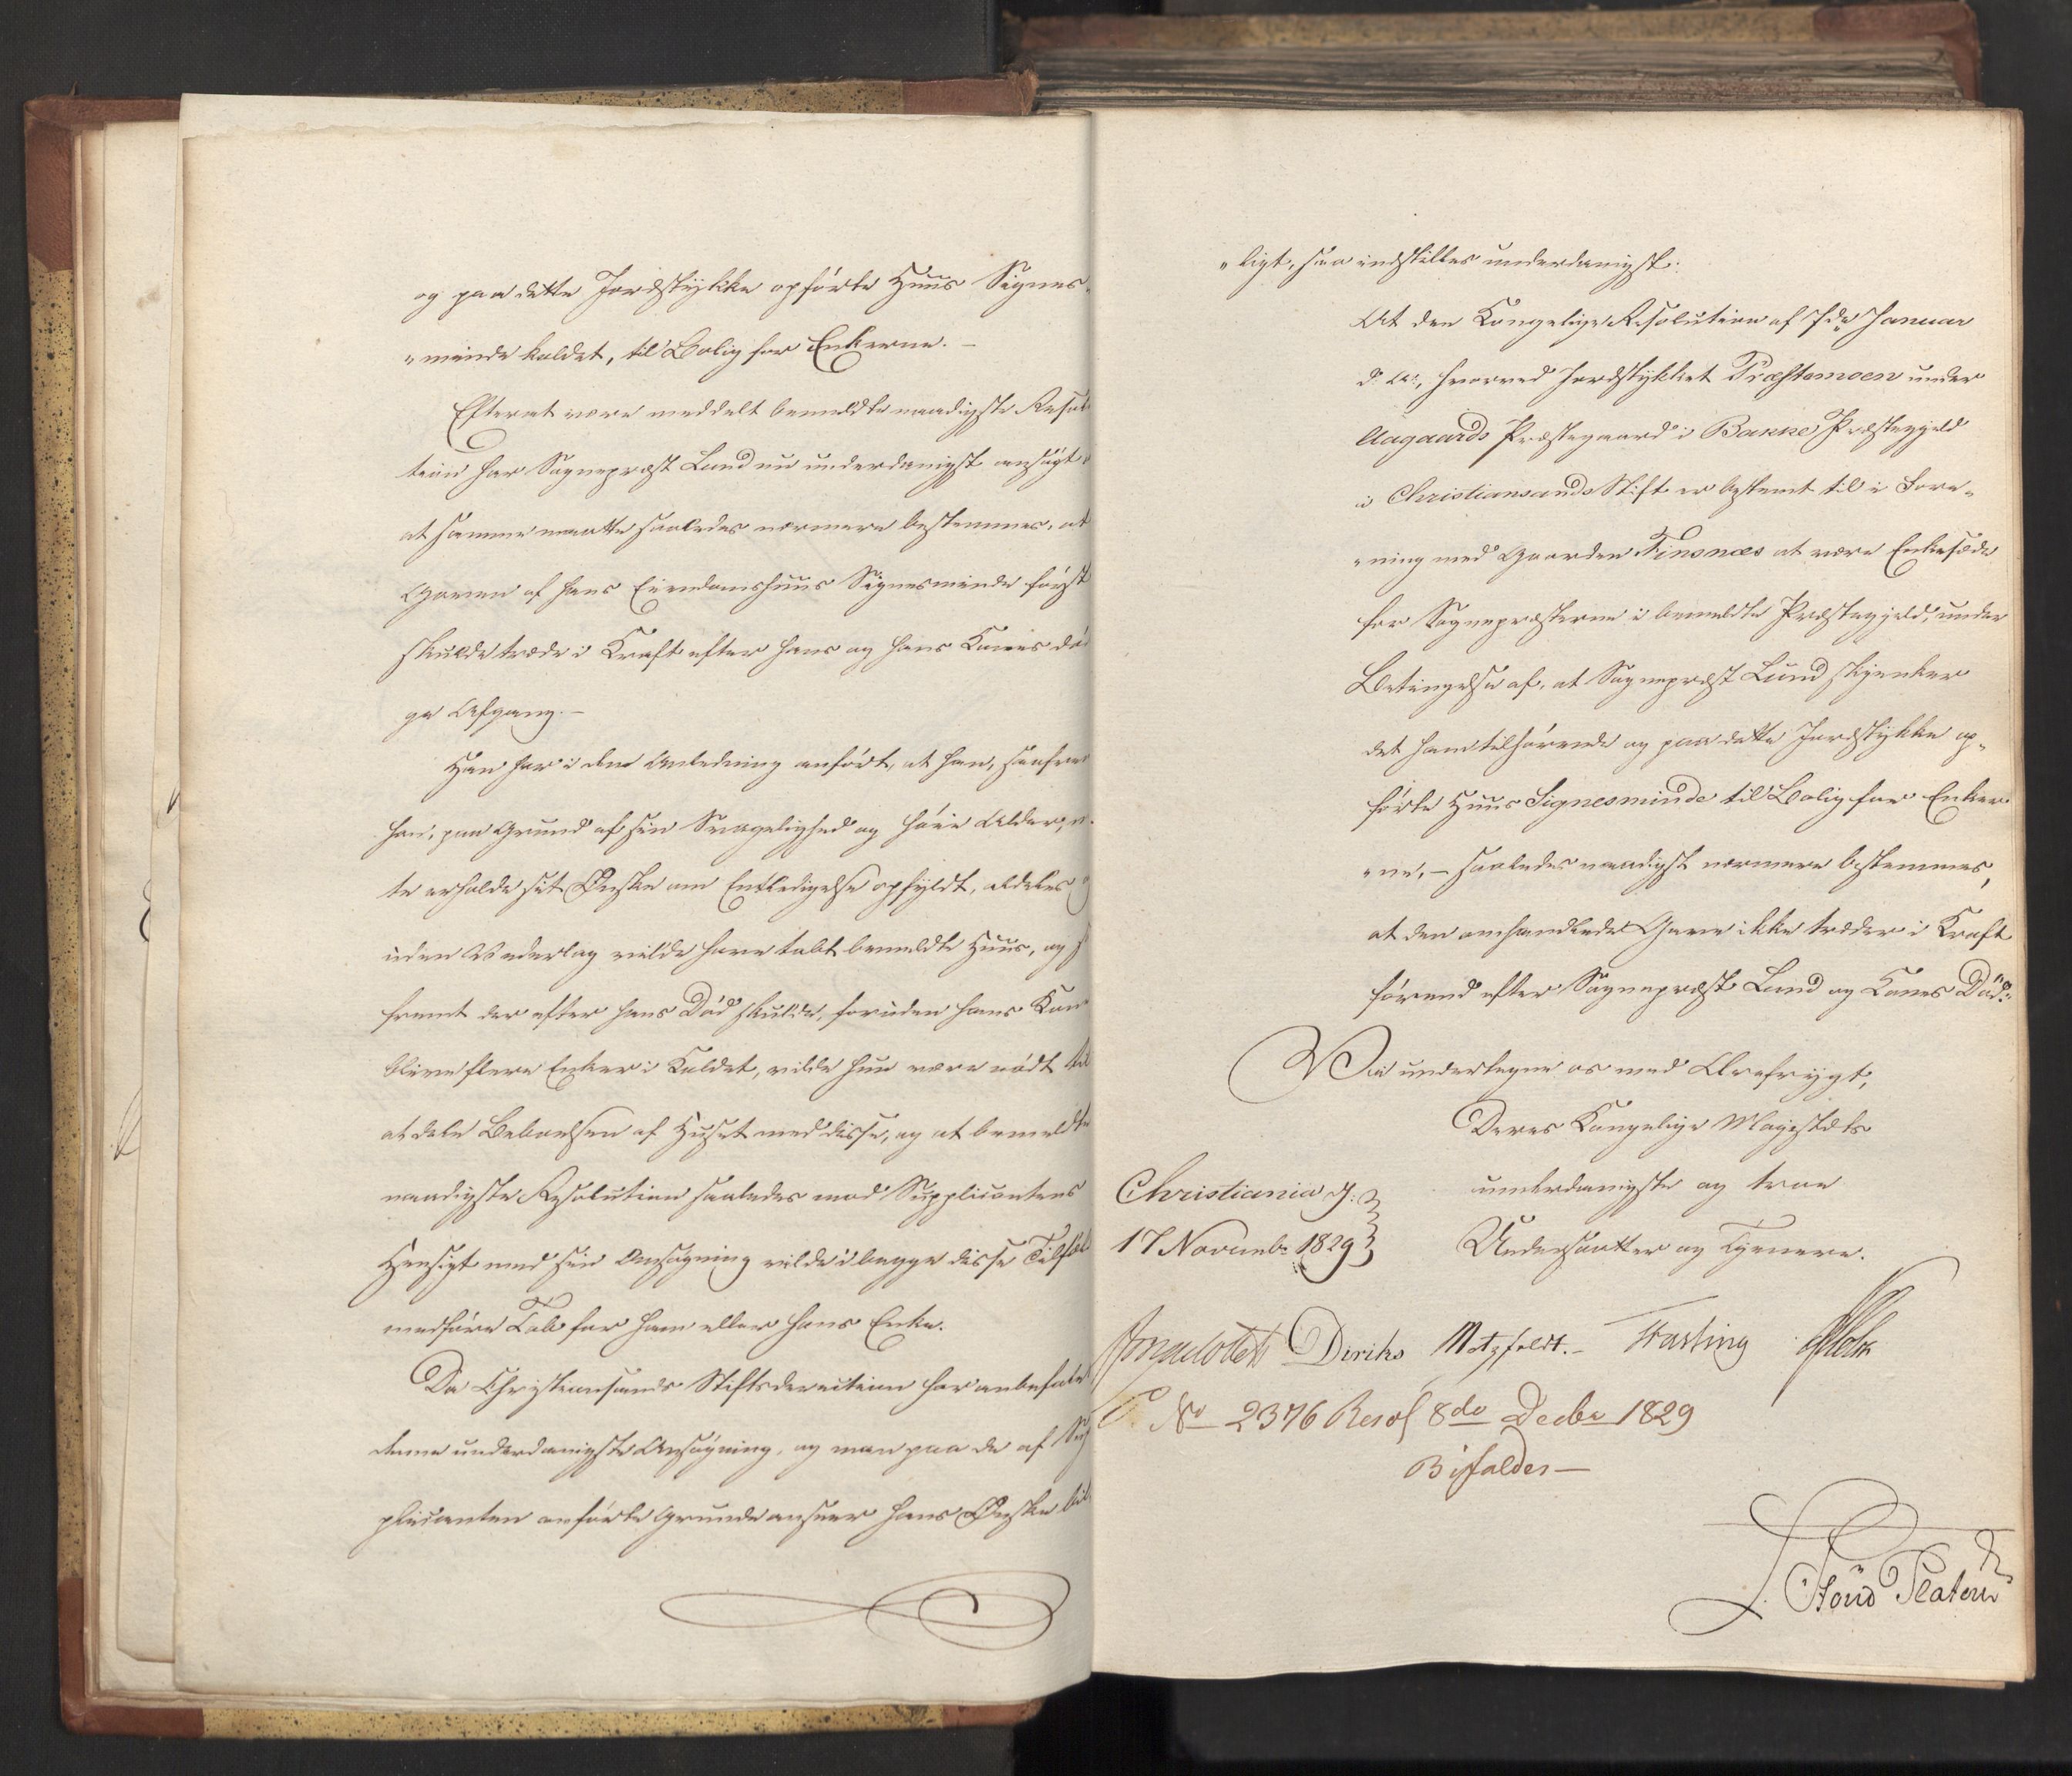 og paa dette Jordstykke opførte Huus Signes„
„minde kaldet, til Bolig for Enkerne. –
Efterat være meddelt bemeldte naadigste Resolu
tion har Sognepræst Lund nu underdanigst ansøgt
at samme maatte saaledes nærmere bestemmes, at
Gaven af hans Eiendomshuus Signesminde først
skulde træde i Kraft efter hans og hans Kones dø
ge Afgang. –
Han har i den Anledning anført, at han, saafrem
han, paa Grund af sin Svagelighed og høie Alder,
te erholde sit Ønske om Entledigelse opfyldt, aldeles
uden Vederlag vilde have tabt bemeldte Huus, og
fremt der efter hans Død skulde, foruden hans Kone
blive flere Enker i Kaldet, vilde hun være nødt til
at dele Beboelsen af Huset med disse, og at bemeldte
naadigste Resolution saaledes mod Supplicantens
Hensigt med sin Ansøgning vilde i begge disse Tilfæl
medføre Tab for ham eller hans Enke.
Da Christiansands Stiftsdirection har anbefalet
denne underdanigste Ansøgning, og man paa de af Sup
plicanten anførte Grunde anseer hans Ønske bil
„ligt, saa indstilles underdanigst:
At den Kongelige Resolution af 7de Januar
d. A., hvorved Jordstykket Præstemoen under
Aagaards Præstegaard i Bakke Præstegjeld
i Christiansands Stift er bestemt til i Fore„
„ning med Gaarden Finsnæs at være Enkesæde
for Sognepræsterne i bemeldte Præstegjeld, under
Betingelse af, at Sognepræst Lund skjenker
det ham tilhørende og paa dette Jordstykke op„
førte Huus Signesminde til Bolig for Enker
„ne, – saaledes naadigst nærmere bestemmes,
at den omhandlede Gave ikke træder i Kraft
førend efter Sognepræst Lund og Kones Død.
Vi undertegne os med Ærefrygt,
Deres Kongelige Majestæts
underdanigste og troe
Undersaatter og Tjenere.
Christiania d:
17 Novembr 1829
Diriks Motzfeldt. – Fasting
No 2376 Resol 8de Decbr 1829
Bifaldes –
Platou